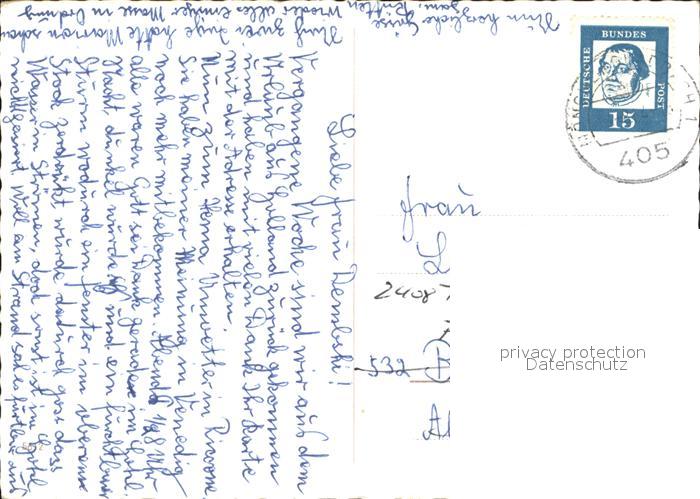 Liebe Frau Dembski!
Vergangene Woche sind wir aus dem
Urlaub aus Holland zurück gekommen
und haben mit vielen Dank Ihr Karte
mit der Adresse erhalten.
Nun zum Thema Unwetter in Riccione.
Sie haben meiner Meinung in Venedig
noch mehr mitbekommen. Abends 1/2 8 Uhr
alle waren Gott sei Dank gerade im Hotel
Nacht, dunkel wurde es und ein furchtbarer
Sturm wodurch ein Fenster im oberen
Stock zerdrückt wurde dadurch goss das
Wasser in Strömen, doch sonst ist im Hotel
nichts passiert. Will am Strand sah es
Nach zwei Tage hatte Marion schon
wieder alles in Ordnung
Nun herzliche Grüße
DEUTSCHE BUNDES POST
15
405
Frau
L
2408
532
privacy protection
Datenschutz